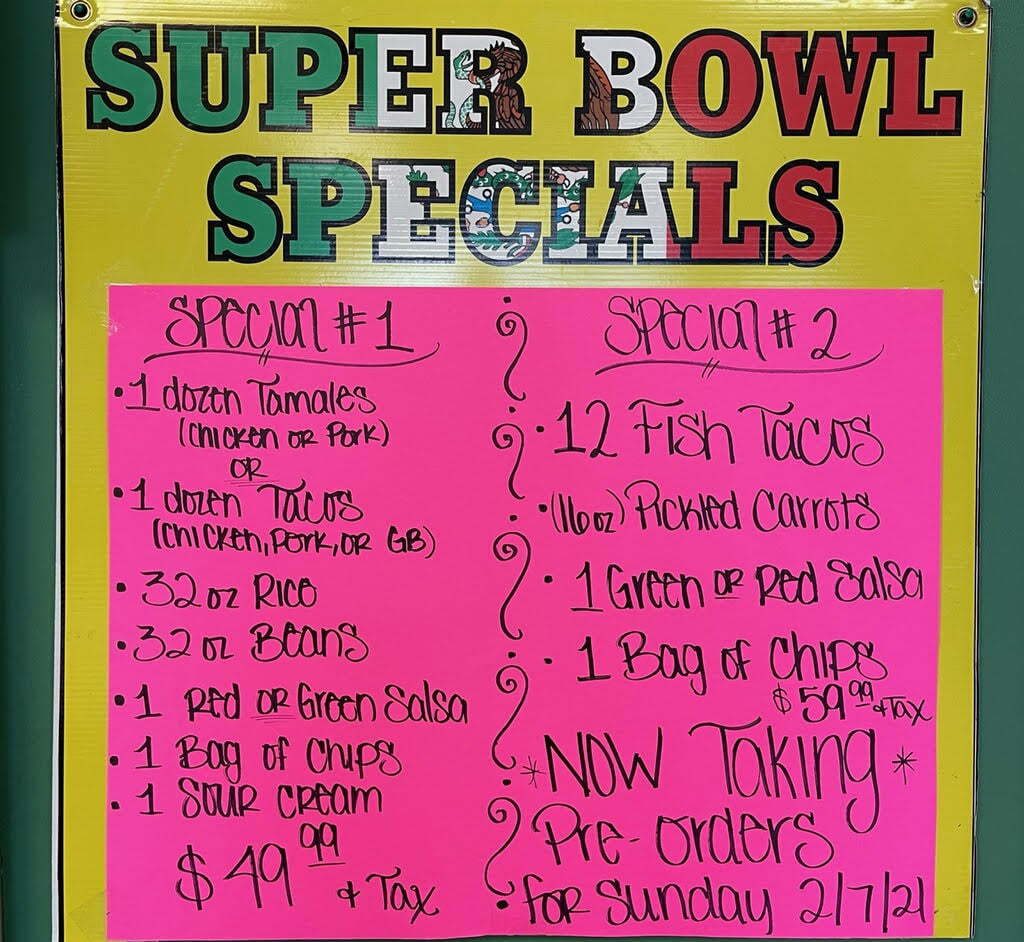 SUPER BOWL
SPECIALS
Special #1
• 1 dozen Tamales
(Chicken or Pork)
OR
• 1 dozen Tacos
(Chicken, Pork, or GB)
• 32 oz Rice
• 32 oz Beans
• 1 Red or Green Salsa
• 1 Bag of Chips
• 1 Sour Cream
$49.99 + Tax
Special #2
• 12 Fish Tacos
• (16 oz) Pickled Carrots
• 1 Green or Red Salsa
• 1 Bag of Chips
$59.99 + Tax
*Now Taking*
Pre-orders
for Sunday 2/7/21